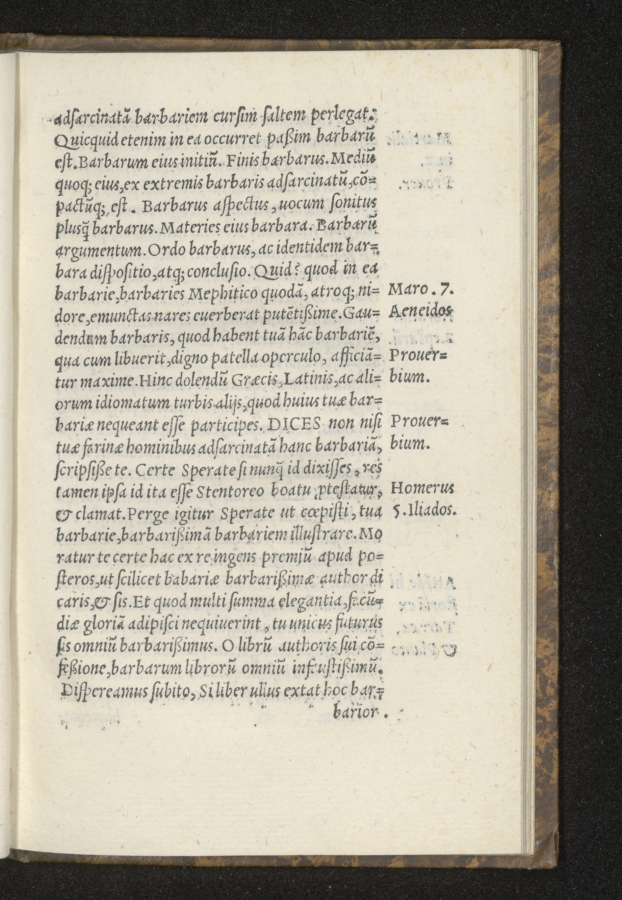 adsarcinatã barbariem cursim saltem perlegat.
Quicquid etenim in ea occurret paßim barbarũ
est. Barbarum eius initiũ. Finis barbarus. Mediũ
quoq; eius, ex extremis barbaris adsarcinatũ, cõ-
pactũq; est. Barbarus aspectus, uocum sonitus
plusq̃ barbarus. Materies eius barbara. Barbarũ
argumentum. Ordo barbarus, ac identidem bar=
bara dispositio, atq; conclusio. Quid? quod in ea
barbarie, barbaries Mephitico quodã, atroq; ni= Maro. 7.
dore, emunctas nares euerberat putẽtißime. Gau= Aeneidos
dendum barbaris, quod habent tuã hãc barbariẽ,
qua cum libuerit, digno patella operculo, afficiã= Prouer=
tur maxime. Hinc dolendũ Græcis, Latinis, ac ali= bium.
orum idiomatum turbis alijs, quod huius tuæ bar=
bariæ nequeant esse participes. DICES non nisi Prouer=
tuæ farinæ hominibus adsarcinatã hanc barbariã, bium.
scripsiße te. Certe Sperate si nunq̃ id dixisses, res
tamen ipsa id ita esse Stentoreo boatu ꝓtestatur, Homerus
& clamat. Perge igitur Sperate ut cœpisti, tua 5. Iliados.
barbarie, barbarißimã barbariem illustrare. Mo
ratur te certe hac ex re ingens premiũ apud po=
steros, ut scilicet babariæ barbarißimæ author di
caris, & sis. Et quod multi summa elegantia, facũ=
diæ gloriã adipisci nequiuerint, tu unicus futurus
sis omniũ barbarißimus. O librũ authoris sui cõ=
feßione, barbarum librorũ omniũ infaustißimũ.
Dispereamus subito, Si liber ullus extat hoc bar=
barior.